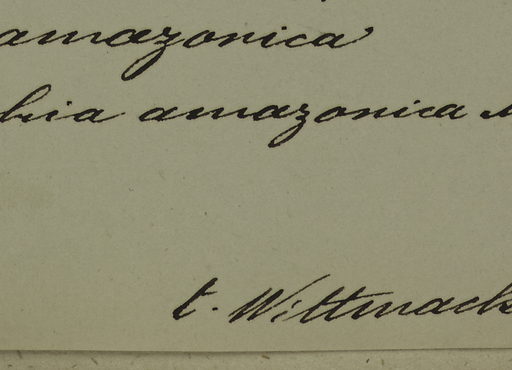 amazonica
bia amazonica
t. Wittmack